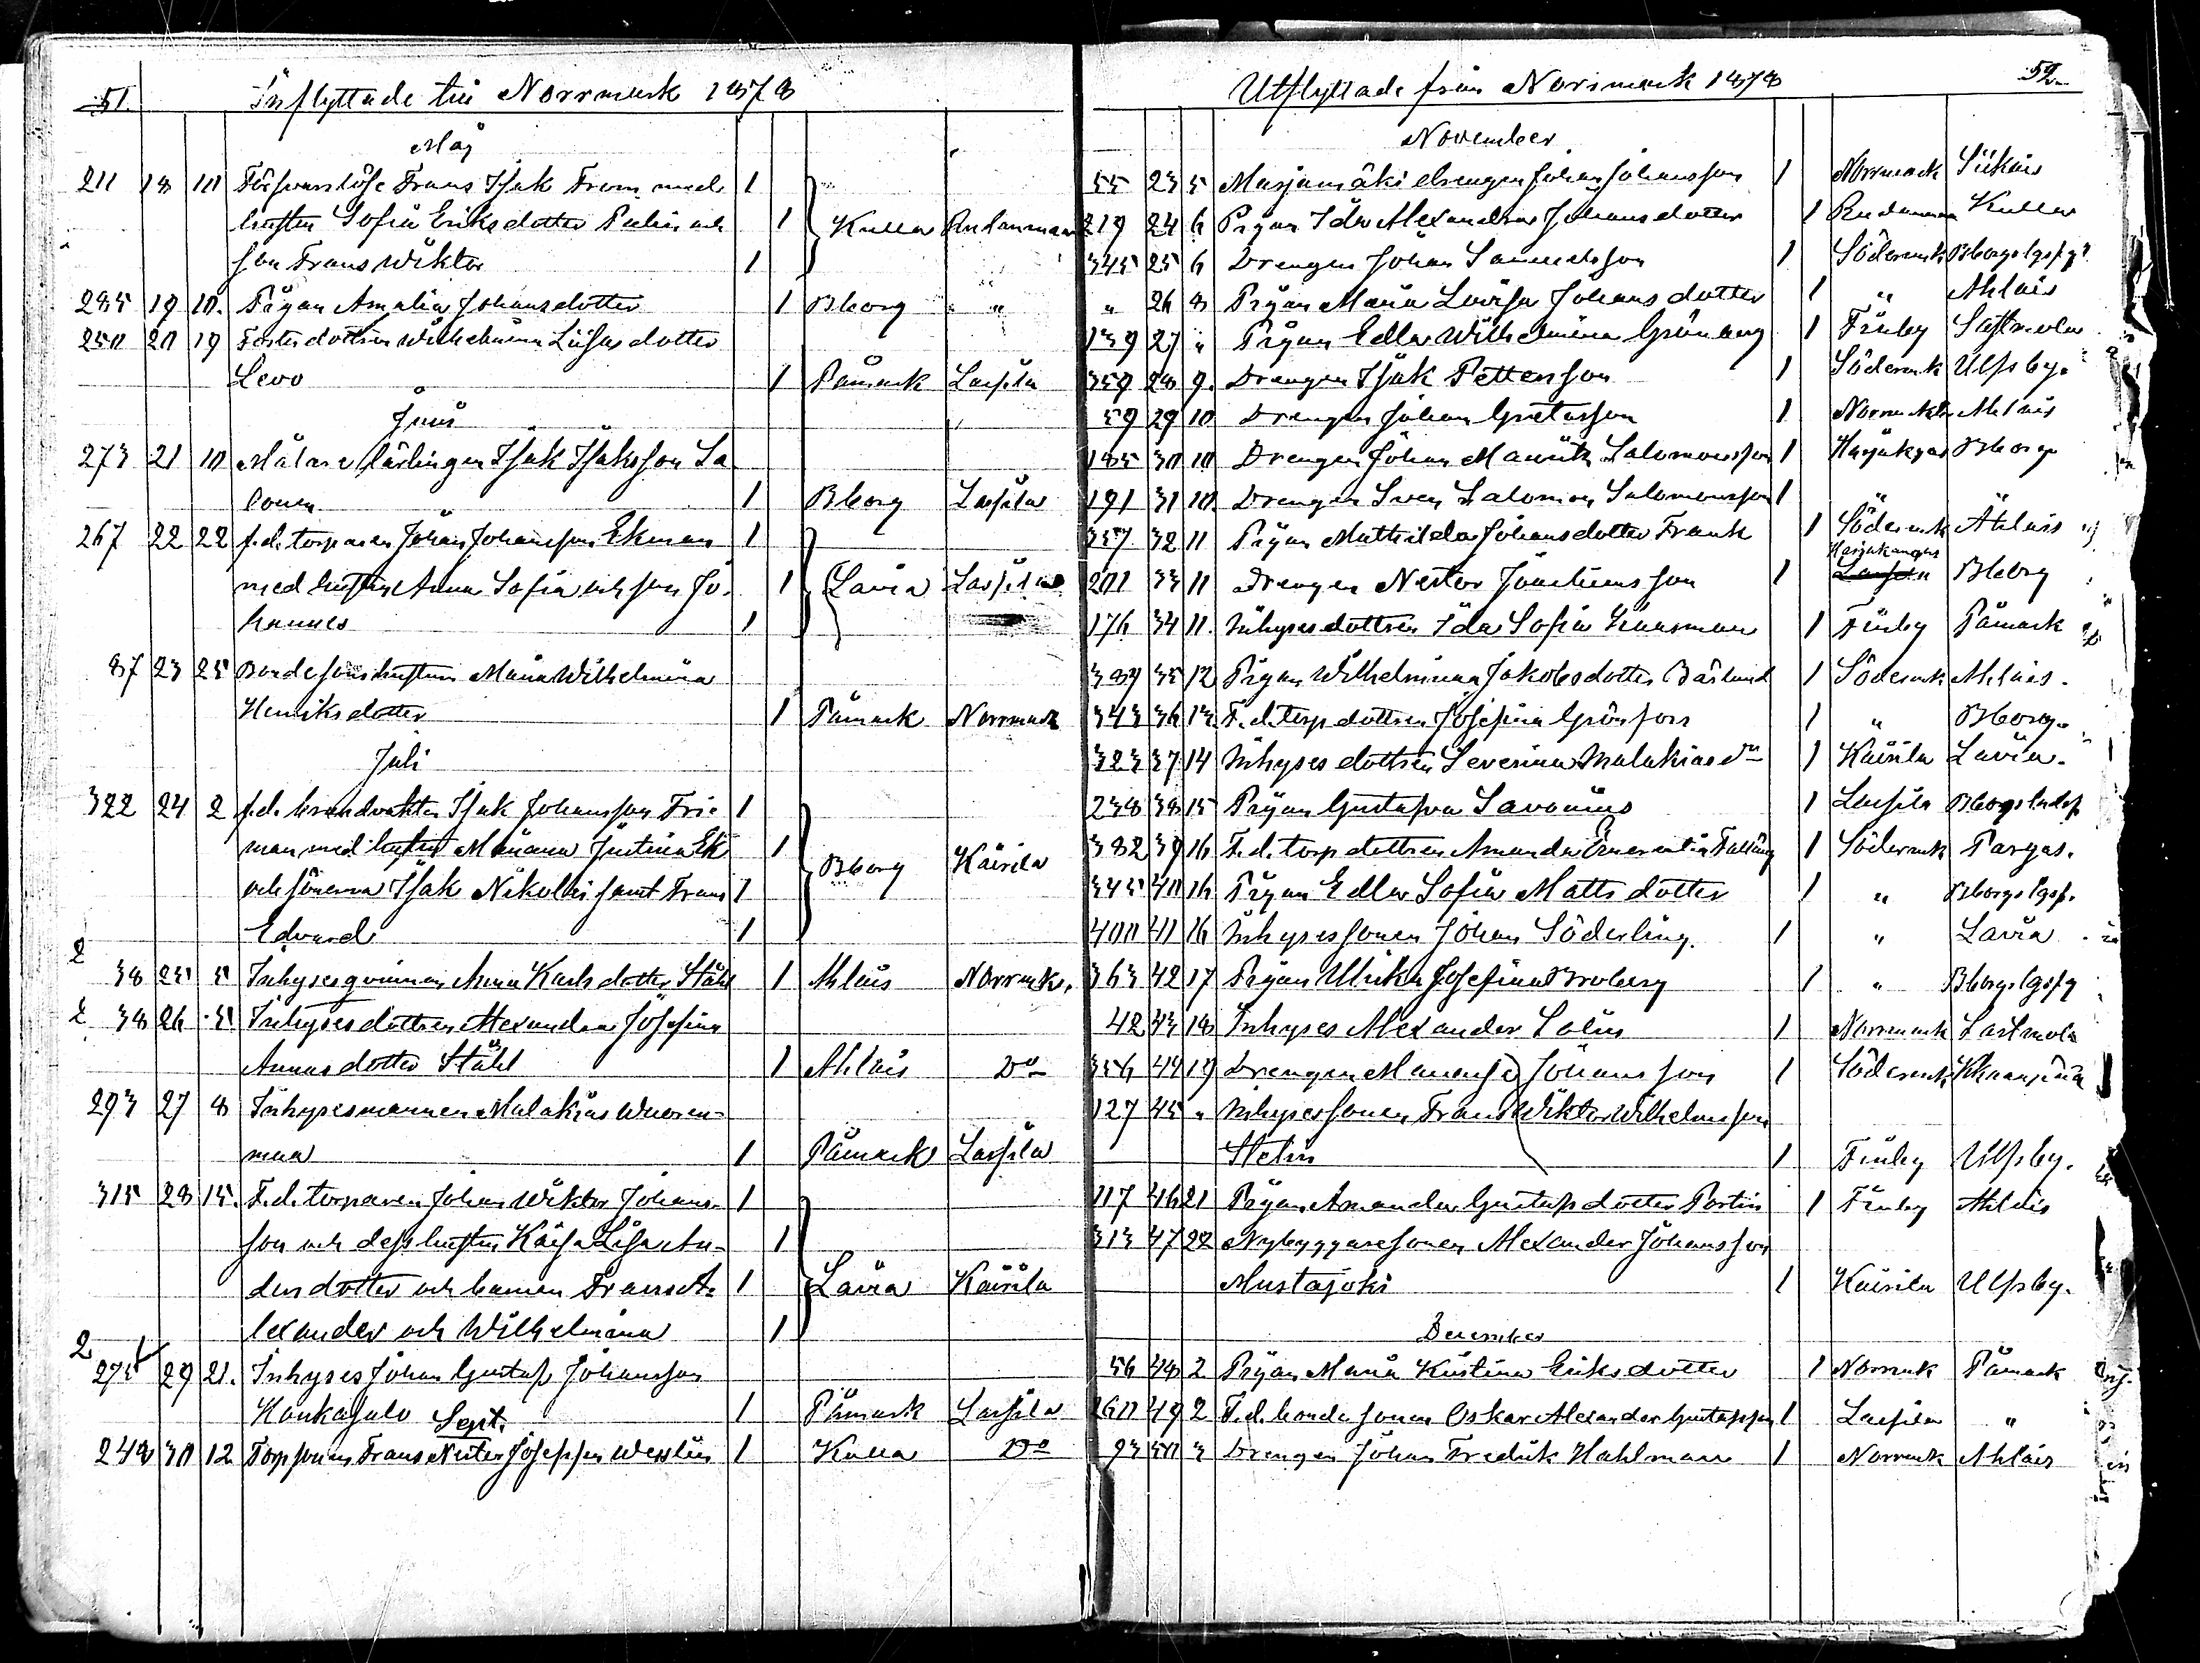 51. Inflyttade till Norrmark 1878
Maj
211 18 10 Försvarslöse Frans Isak From med 1
hustru Sofia Eriksdotter Palin och 1 Kulla Rudanmaa
son Frans Wiktor 1
285 19 10. Pigan Amalia Johansdotter 1 Bborg "
250 20 19 Fosterdottren Wilhelmina Liisasdotter
Levo 1 Påmark Lassila
Juni
273 21 10 Målare lärlingen Isak Isaksson Sa
lonen 1 Bborg Lassila
267 22 22 f.d. torparen Johan Johansson Ekman 1
med hustru Anna Sofia och son Jo- 1 Lavia Lassila
hannes 1
87 23 25 Bondesons hustrun Maria Wilhelmina
Henriksdotter 1 Påmark Norrmark
Juli
322 24 2 f.d. brandvakten Isak Johansson Fri- 1
man med hustru Mariana Justina Ek 1 Bborg Kairila
och sönerna Isak Nikolai samt Frans 1
Edvard 1
2
38 25 5 Inhysesqvinnan Anna Karlsdotter Ståhl 1 Ahlais Norrmk.
2 38 26 5 Inhysesdottren Alexandra Josefina
Annasdotter Ståhl 1 Ahlais Do
293 27 8 Inhysesmannen Malakias Wuoren-
maa 1 Påmark Lassila
315 28 15. F.d. torparen Johan Wiktor Johans- 1
son och dess hustru Kaisa Lisa An- 1
dersdotter och barnen Frans A- 1 Lavia Kairila
lexander och Wilhelmina 1
2
275 29 21. Inhyses Johan Gustaf Johansson
Kankasalo 1 Påmark Lassila
Sept.
248 30 12 Torpsonen Frans Nester Josefsson Wesslin 1 Kulla Do
Utflyttade från Norrmark 1878 52
November
55 23 5 Marjamäki drengen Johan Johansson 1 Norrmark Siikais
219 24 6 Pigan Ida Alexandra Johansdotter 1 Rudanmaa Kulla
345 25 6 Drengen Johan Samuelsson 1 Södermk Bborgs lgsfg
" 26 8 Pigan Maria Lovisa Johansdotter 1 " Ahlais
139 27 " Pigan Edla Wilhelmina Grönberg 1 Finby Sastmola
359 28 9. Drengen Isak Petterson 1 Södermk Ulfsby.
59 29 10 Drengen Johan Gustafsson 1 Norrmk Ahlais
185 30 10 Drengen Johan Maurits Salomonsson 1 Harjakgas Bborg
191 31 10. Drengen Sven Salomon Salomonsson 1 " "
357 32 11 Pigan Mathilda Johansdotter Frank 1 Södermk Ahlais
201 33 11 Drengen Nestor Joachimsson 1 Harjakangas Bborg
176 34 11. Inhysesdottren Ida Sofia 1 Finby Påmark
389 35 12 Pigan Wilhelmina Jakobsdotter Bärlund 1 Södermk Ahlais.
343 36 13. F.d. torpdottren Josefina Grönfors 1 " Bborg.
323 37 14 Inhysesdottren Severina Malakiasdr 1 Kairila Lavia.
238 38 15 Pigan Gustafva Savonius 1 Lassila Bborgs landsf
382 39 16 F.d. torpdottren Amanda Emerentia 1 Södermk Pargas.
345 40 16 Pigan Edla Sofia Mattsdotter 1 " Bborgs lgsf.
400 41 16 Inhysessonen Johan Söderling. 1 " Lavia
363 42 17 Pigan Ulrika Josefina Broberg 1 " Bborgs lgsfg
42 43 18 Inhyses Alexander Salin 1 Norrmark Sastmola
356 44 19 Drengen Manasse Johansson 1 Södermk
127 45 " Inhysessonen Frans Wiktor Wilhelmsson
Helin 1 Finby Ulfsby.
117 46 21 Pigan Amanda Gustafsdotter Portin 1 Finby Ahlais
313 47 22 Nybyggaresonen Alexander Johansson
Mustajoki 1 Kairila Ulfsby.
December
56 48 2 Pigan Maria Kristina Eriksdotter 1 Norrmk Påmark
260 49 2 F.d. bondesonen Oskar Alexander Gustafsson 1 Lassila "
93 50 3 Drengen Johan Fredrik Hahlman 1 Norrmk Ahlais